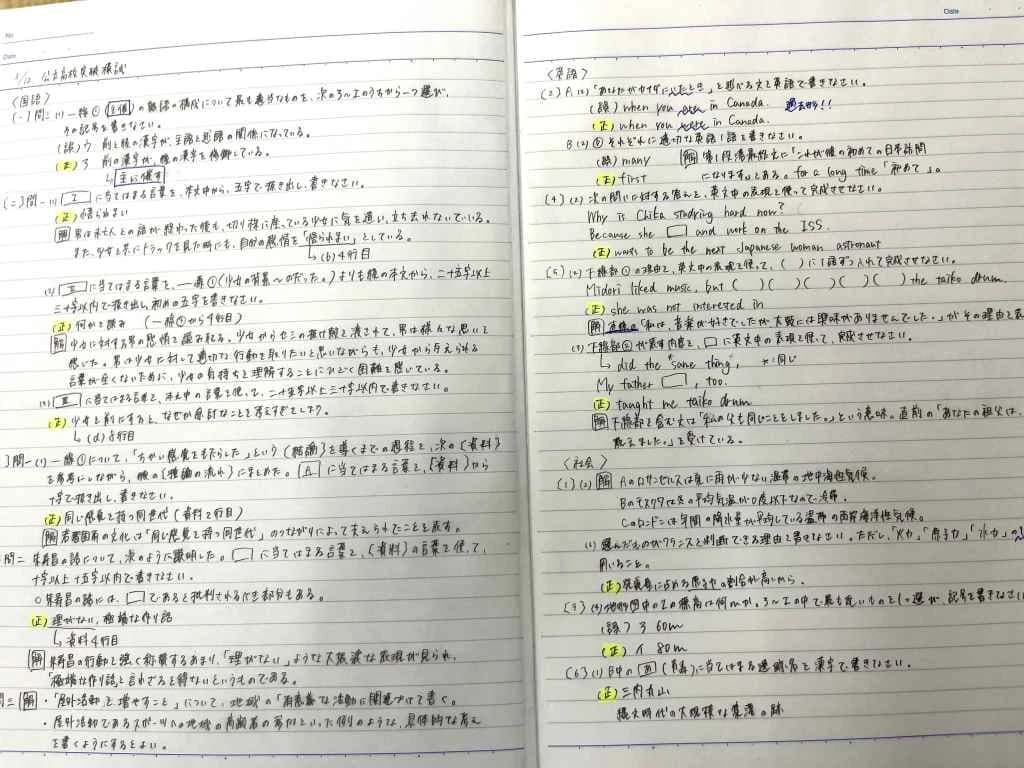 No
Date
公立高校突破模試
〈国語〉
(一)問二(1) 一線① 主値 の熟語の構成について最も適当なものを、次のア〜エのうちから一つ選び、
その記号を書きなさい。
(誤)ウ 前と後の漢字が、主語と述語の関係になっている。
(正)ア 前の漢字が、後の漢字を修飾している。
(二)問一(1) に当てはまる言葉を、本文中から、五字で抜き出し、書きなさい。
(正)悟られまい
解 男は夫人との話が終わった後も、切り株に座っている少女に気を遣い、立ち去れないでいる。
また、少女と共にトラックを見た時にも、自分の感情を「悟られまい」としている。
↳(b)4行目
(2) 三 に当てはまる言葉を、一線①(少女の背景〜のだった。)よりも後の本文から、二十五字以上
三十字以内で抜き出し、初めの五字を書きなさい。
(正)何かを読み (一線①から4行目)
解 少女に対する男の感情を読み取る。少女から
男は様々な思いを
抱いた。男は少女に対して適切な行動を取りたいと思いながらも、少女から与えられる
言葉が全くないために、少女の気持ちを理解することにひどく困難を感じている。
(3) に当てはまる言葉を、本文中の言葉を使って、二十五字以上三十字以内で書きなさい。
(正)少女を前にすると、なぜか余計なことを考えすぎてしまう。
↳(d)5行目
問一(1) 一線①について、「ちかい感覚をもたらした」という(結論)を導くまでの過程を、次の(資料)
を参考にしながら、後の(推論の流れ)にまとめた。 に当てはまる言葉を、(資料)から
十字で抜き出し、書きなさい。
(正)同じ感覚を持つ同世代(資料2行目)
解 若者固有の文化は「同じ感覚を持つ同世代」のつながりによって支えられたことを表す。
問二 朱寿昌の話について、次のように説明した。 に当てはまる言葉を、(資料)の言葉を使って、
十字以上十五字以内で書きなさい。
○朱寿昌の話には、 であると批判されるべき部分もある。
(正)理がない、極端な作り話
↳資料4行目
解 朱寿昌の行動を強く称賛するあまり、「理がない」ような大袈裟な表現が見られ、
「極端な作り話」と言わざるを得ないというものである。
問三 解 ・「屋外活動を増やすこと」について、地域の「
な活動に関連づけて書く。
・屋外活動であるスポーツへの地域の高齢者の参加といった例のように、具体的な考え
を書くようにするとよい。
Date
〈英語〉
(2)A(2)「あなたがカナダにいたとき」と述べる文を英語で書きなさい。
(誤) when you in Canada. 過去形!!
(正) when you were in Canada.
B(2)② それぞれに適切な英語1語を書きなさい。
(誤) many 解 第1段落最終文に「これが後の初めての日本訪問
(正) first になります」とある。for a long time「初めて」。
(4)(2) 次の問いに対する答えを、英文中の表現を使って完成させなさい。
Why is Chika studying hard now?
Because she □ and work on the ISS.
(正) wants to be the next Japanese woman astronaut
(5)(2) 下線部①の理由を、英文中の表現を使って、( )に1語ずつ入れて完成させなさい。
Midori liked music, but ( ) ( ) ( ) ( ) the taiko drum.
(正) she was not interested in
解 直後の「私は、音楽が好きでしたが太鼓には興味がありませんでした。」がその理由を表
(3) 下線部②が表す内容を、□に英文中の表現を使って、完成させなさい。
↳ did the "same thing", *:同じ
My father □, too.
(正) taught me taiko drum
解 下線部を含む文は「私の父も同じことをしました。」という意味。直前の「あなたの祖父は、
教えました。」を受けている。
〈社会〉
(1)(2) 解 Aのロサンゼルスは夏に雨が少ない温帯の地中海性気候。
Bのモスクワは冬の平均気温が0度以下なので、冷帯。
Cのロンドンは年間の降水量が平均している温帯の西岸海洋性気候。
選んだものがフランスと判断できる理由を書きなさい。ただし、「火力」「原子力」「水力」
用いること。
(正)発電量に占める原子力の割合が高いから。
(3)(4) 地形図中の の標高は何mか。ア〜エの中で最も近いものを1つ選び、記号を書きなさい
(誤)ア 60m
(正)イ 80m
(6)(1) B中の (青森)に当てはまる遺跡名を漢字で書きなさい。
(正)三内丸山
縄文時代の大規模な集落の跡